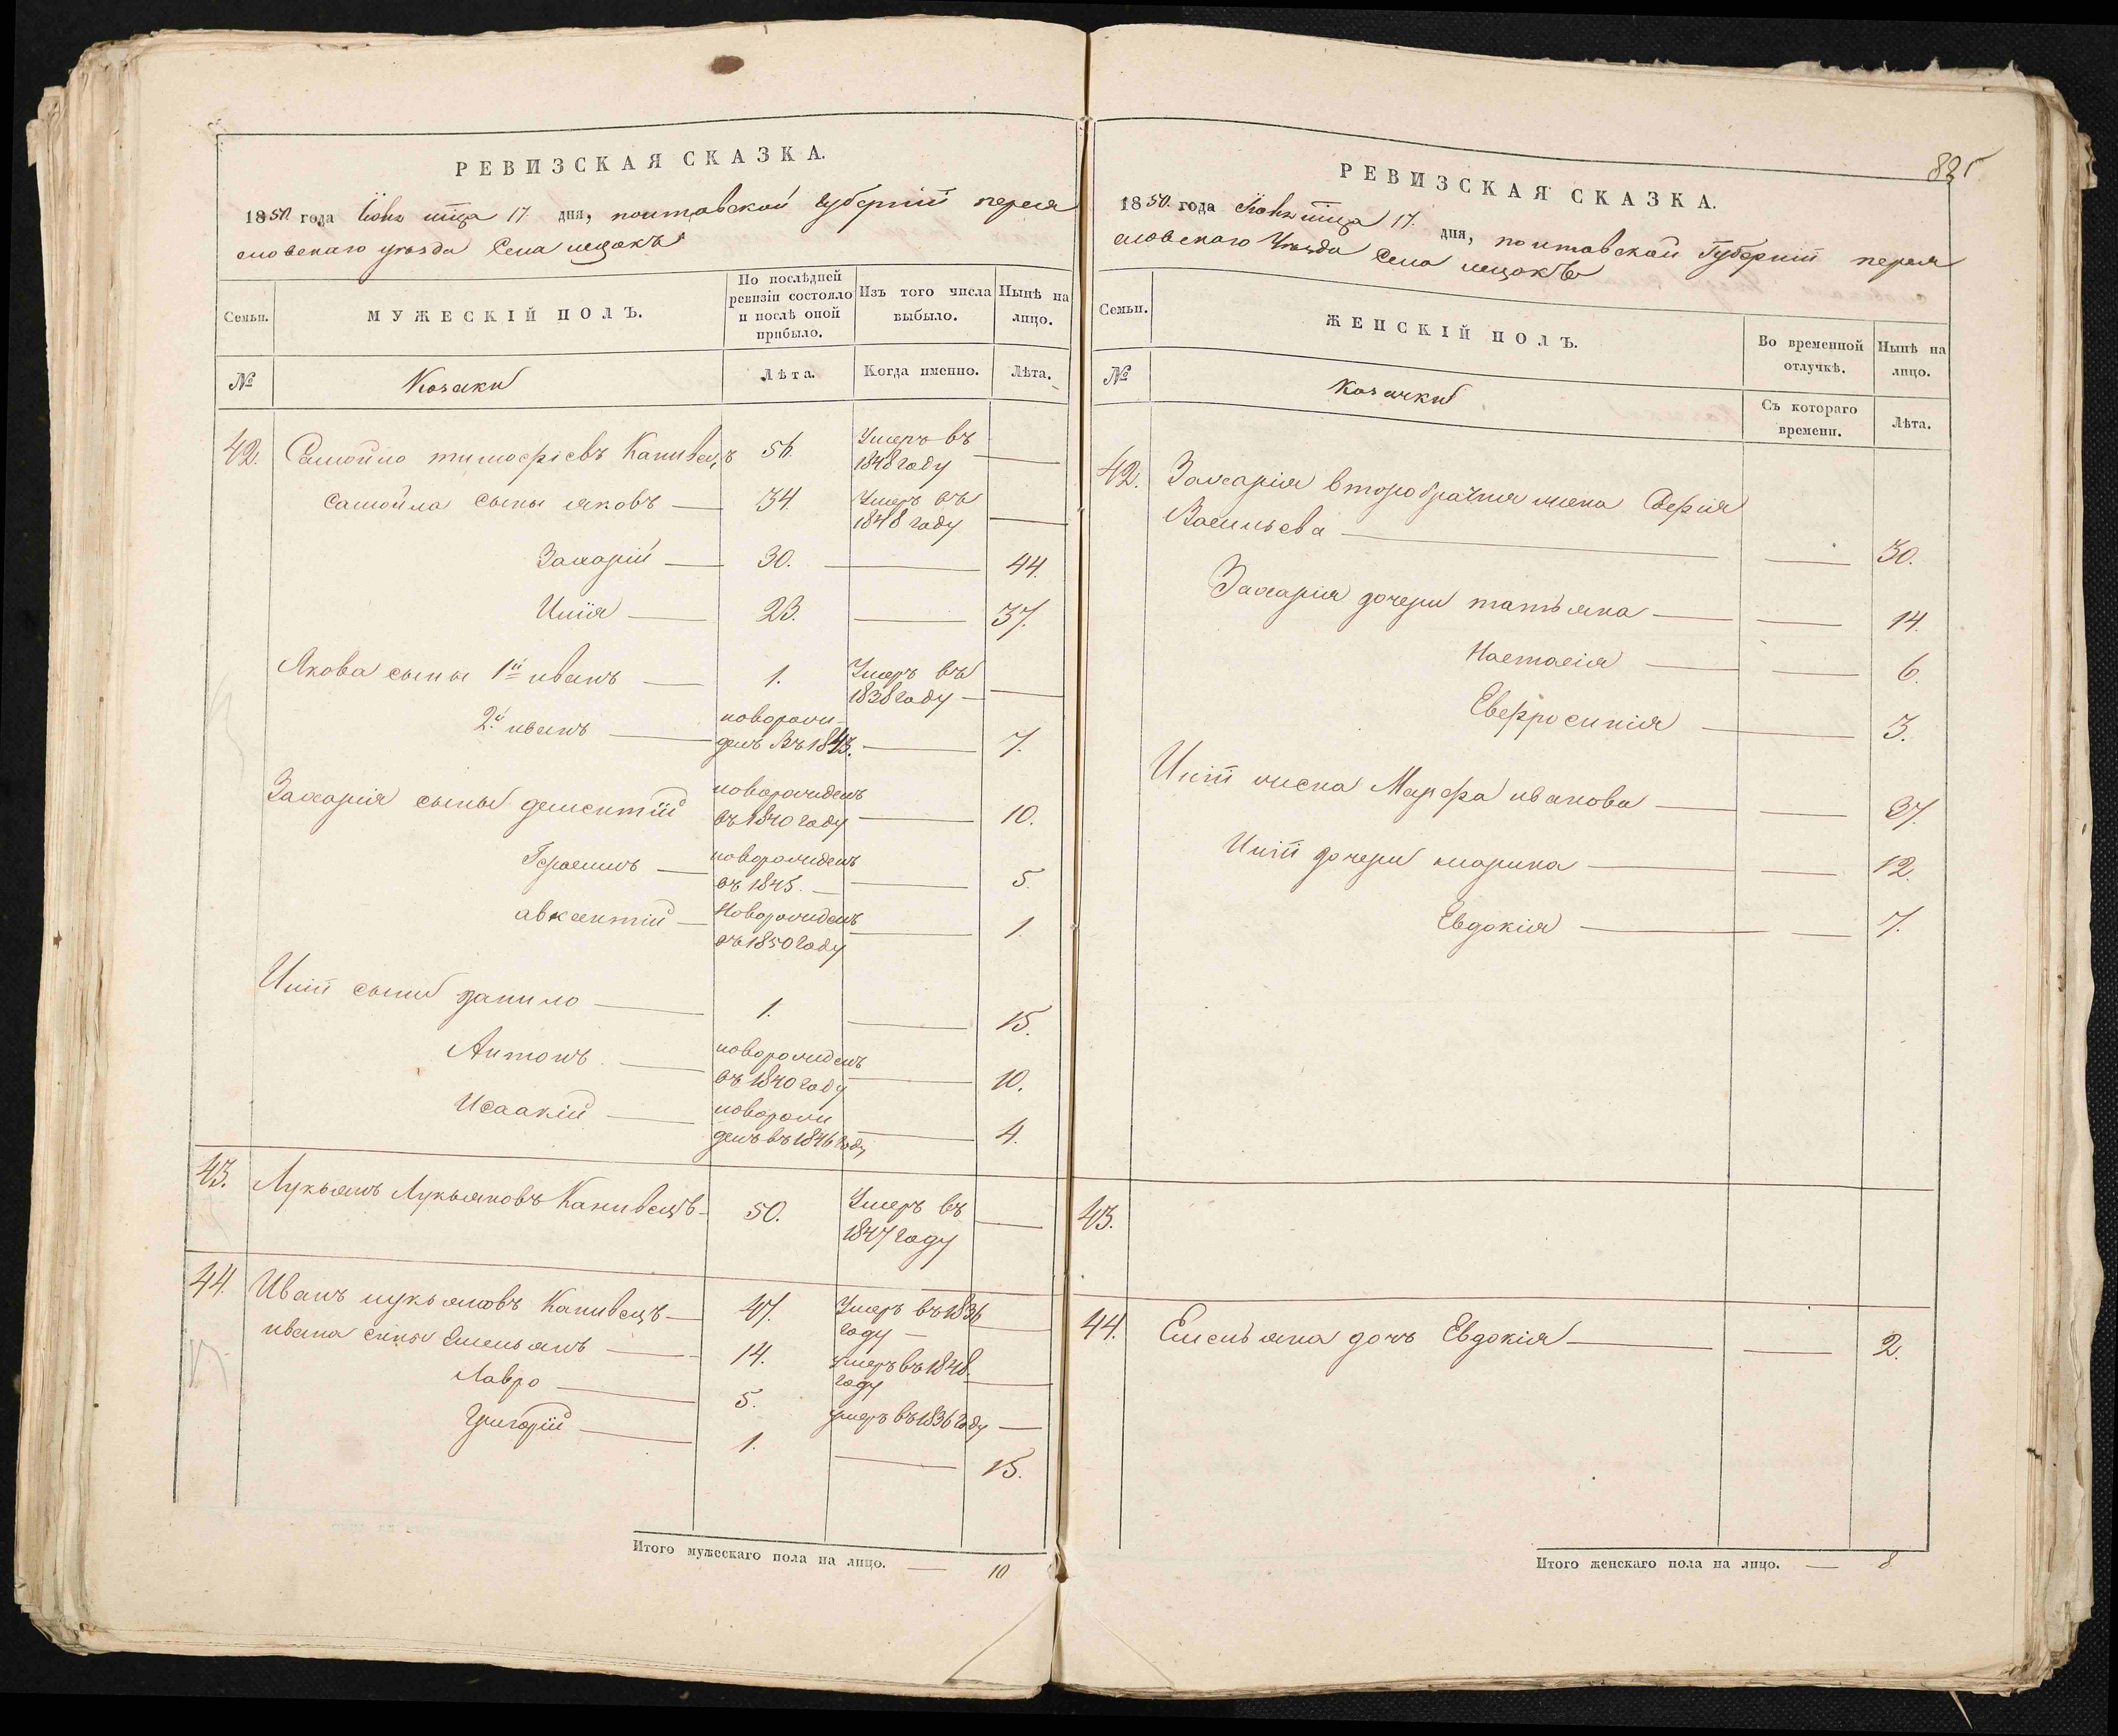 РЕВИЗСКАЯ СКАЗКА.
1850 года Іюня мца 17. дня, полтавской Губерніи перея
словскаго уезда Села лецокъ
Семьи.
МУЖЕСКІЙ ПОЛЪ.
По послѣдней ревизіи состояло и послѣ оной прибыло.
Изъ того числа выбыло.
Нынѣ на лицо.
№
Козаки
Лѣта.
Когда именно.
Лѣта.
42. Самойло тимофіевъ Канивецъ 56. Умеръ въ
1848 году —
самойла сыны яковъ — 34. Умеръ въ
1848 году —
Захарій — 30. — 44.
Илія — 23. — 37.
Якова сыны 1й иванъ — 1. Умеръ въ
1838 году —
2й иванъ — новорожи-
денъ въ 1843. — 7.
Захарія сыны дементій новорожденъ
въ 1840 году — 10.
Герасимъ — новорожиденъ
въ 1845. — 5.
авксентій — Новорожиденъ
въ 1850 году — 1.
Иліи сыны данило — 1. — 15.
Антонъ — новорожиденъ
въ 1840 году — 10.
Исаакій — новорожи
денъ въ 1846 году — 4.
43. Лукьянъ Лукьяновъ Канивецъ — 50. Умеръ въ
1847 году —
44. Иванъ лукьяновъ Канивецъ — 47. Умеръ въ 1836
году —
ивана сыны Емельянъ — 14. умеръ въ 1848.
году —
Лавро — 5. умеръ въ 1836 году —
Григорій — 1. — 15.
Итого мужескаго пола на лицо. — 10
825
РЕВИЗСКАЯ СКАЗКА.
1850. года Іюня мца 17. дня, полтавской Губерніи перея
словскаго Уезда Села лецокъ
Семьи.
ЖЕНСКІЙ ПОЛЪ.
Во временной отлучкѣ.
Нынѣ на лицо.
№
козачки
Съ котораго времени.
Лѣта.
42. Захарія второбрачня жена Софія
Васильева — — 30.
Захарія дочери татьяна — — 14.
Настасія — — 6.
Евфросинія — 3.
Иліи жена Марфа иванова — — 37.
Иліи дочери марина — — 12.
Евдокія — — 7.
43.
44. Емельяна дочь Евдокія — — 2.
Итого женскаго пола на лицо. — 8